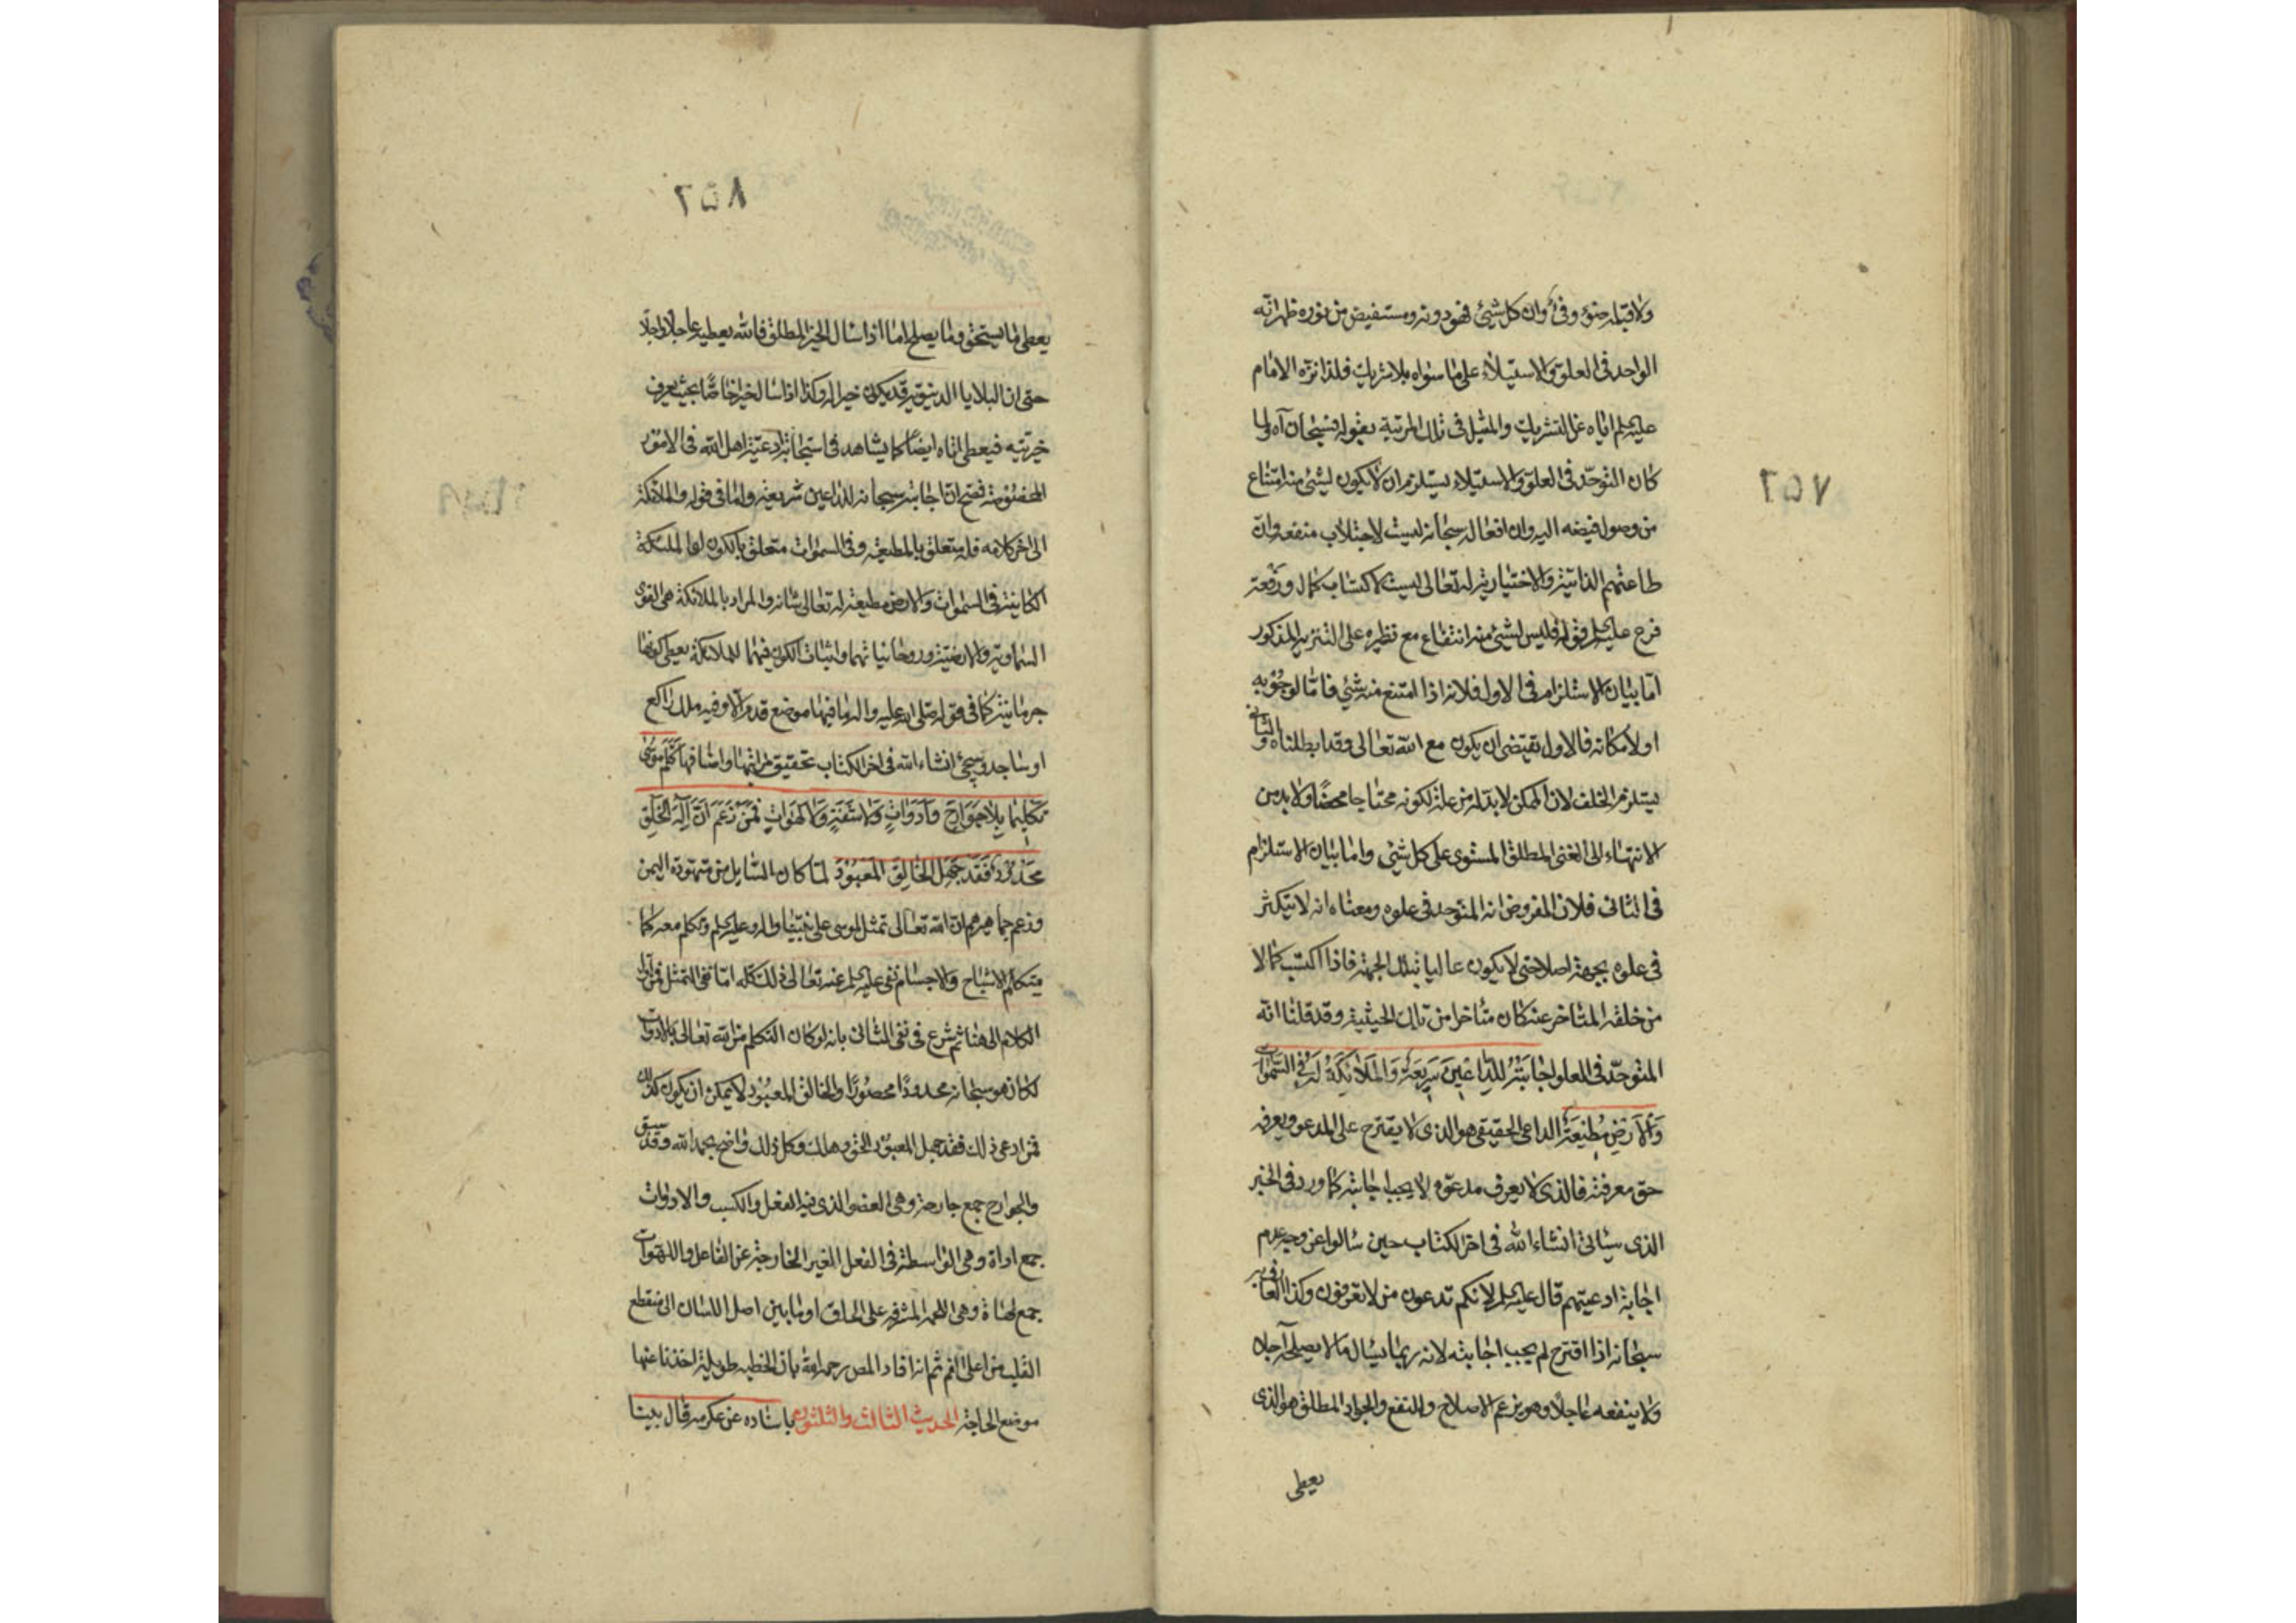 ٢٥٧
ولا قبله ضوء وفئ وان كل شيئ فهو دونه ومستفيض من نوره ظهر انّه
الواحد فى العلوّ والاستيلاء على ما سواه بلا شريك فلذا نزّه الامام
عليه السلم اياه عن الشريك والمثل فى تلك المرتبة بقوله فسبحان آه ولما
كان التوحّد فى العلوّ والاستيلاء يستلزم ان لا يكون لشيئ منه امتناع
من وصول فيضه اليه وان افعاله سبحانه ليست لاجتلاب منفعه وانّ
طاعتهم الذاتيّة والاختياريّة له تعالى ليست لاكتساب كمال ورفعة
فرع عليه السلم قوله فليس لشيئ منه امتناع مع نظيره على التنزيه المذكور
امّا بيان الاستلزام فى الاول فلانه اذا امتنع منه شيئ فامّا لوجوبه
او لامكانه فالاول يقتضى ان يكون مع الله تعالى وقد ابطلناه والثانى
يستلزم الخلف لان الممكن لابدّ له من علة لكونه محتاجا محضًا ولا بد من
الانتهاء الى الغنى المطلق المستوى على كل شيئ واما بيان الاستلزام
فى الثانى فلان المفروض انه المتوحد فى علوه ومعناه انه لا يتكثر
فى علوه بجهة اصلا حتى لا يكون عاليا بتلك الجهة فاذا اكتسب كمالا
من خلقه المتاخر عنه كان متأخرا من تلك الحيثية وقد قلنا انّه
المتوحّد فى العلو اجابَتُهُ لِلدّاعينَ سَريعَةٌ وَالمَلائِكَةُ لَهُ فِى السَّمٰوات
وَالاَرضِ مُطيعَةٌ الداعى الحقيقى هو الذى لا يقترح على المدعو ويعرفه
حق معرفته فالذى لا يعرف مدعوّه لا يجب اجابته كما ورد فى الخبر
الذى سيأتى انشاء الله فى اخر الكتاب حين سالوا عن وجه عدم
اجابة ادعيتهم قال عليه السلم لانكم تدعون من لا تعرفون وكذا العارف به
سبحانه اذا اقترح لم يجب اجابته لانه ربما يسال ما لا يصلح له آجلا
ولا ينفعه عاجلًا وهو يزعم الاصلاح والنفع والجواد المطلق هو الذى
يعطى
٢٥٨
يعطى ما يستحق وما يصلح اما اذا سال الخير المطلق فالله يعطيه عاجلا واجلًا
حتى ان البلايا الدنيويّة قد يكون خيرا له وكذا اذا سال خيرا خاصًّا بحيث يعرف
خيريّته فيعطى اياه ايضًا كما يشاهد فى استجابة ادعيّة اهل الله فى الامور
المخصوصة فصح ان اجابته سبحانه للداعين سريعة واما فى قوله والملائكة
الى اخر كلامه فله متعلق بالمطيعة وفى السموات متعلق بالكون لها الملئكة
الكاينة فى السموات والارض مطيعة له تعالى شانه والمراد بالملائكة هى القوى
السماوية والارضيّة وروحانياتهما واثبات الكون فيهما للملائكة يعطى كونها
جرمانيّة كما فى قوله صلى الله عليه واله ما فيهما موضع قدم الّا وفيه ملك راكع
او ساجد وسيجئ انشاء الله فى اخر الكتاب تحقيق مراتبها واصنافها كَلَّمَ مُوسىٰ
تَكليمًا بِلا جَوارِحَ وَاَدَواتٍ وَلا شَفَةٍ وَلا لَهَواتٍ فَمَن زَعَمَ اَنَّ اِلٰهَ الخَلقِ
مَحدُودٌ فَقَد جَهِلَ الخالِقَ المَعبُودَ لمّا كان السّايل من متهودة اليمن
وزعم جماهيرهم ان الله تعالى تمثل لموسى على نبيّنا واله وعليه السلم وتكلم معه كما
يتكلم الاشباح والاجسام نفى عليه السلم عنه تعالى ذلك كله امّا نفى التمثل فمن اول
الكلام الى هنا ثم شرع فى نفى الثانى بانه لو كان التكلم من الله تعالى بالادوات
لكان هو سبحانه محدودًا محصورًا والخالق المعبود لا يمكن ان يكون كذلك
فمن ادعى ذلك فقد جهل المعبود الحق وهلك وكل ذلك واضح بحمد الله وقد سبق
والجوارح جمع جارحة وهى العضو الذى فيه الفعل والكسب والادوات
جمع اداة وهى الواسطة فى الفعل الغير الخارجة عن الفاعل واللهوات
جمع لهاة وهى اللحمة المشرفة على الحلق او ما بين اصل اللسان الى منقطع
القلب من اعلى الفم ثم انه افاد المص رحمه الله بان الخطبه طويلة اخذنا عنها
موضع الحاجة الحديث الثالث والثلثون باسناده عن عكرمه قال بينا